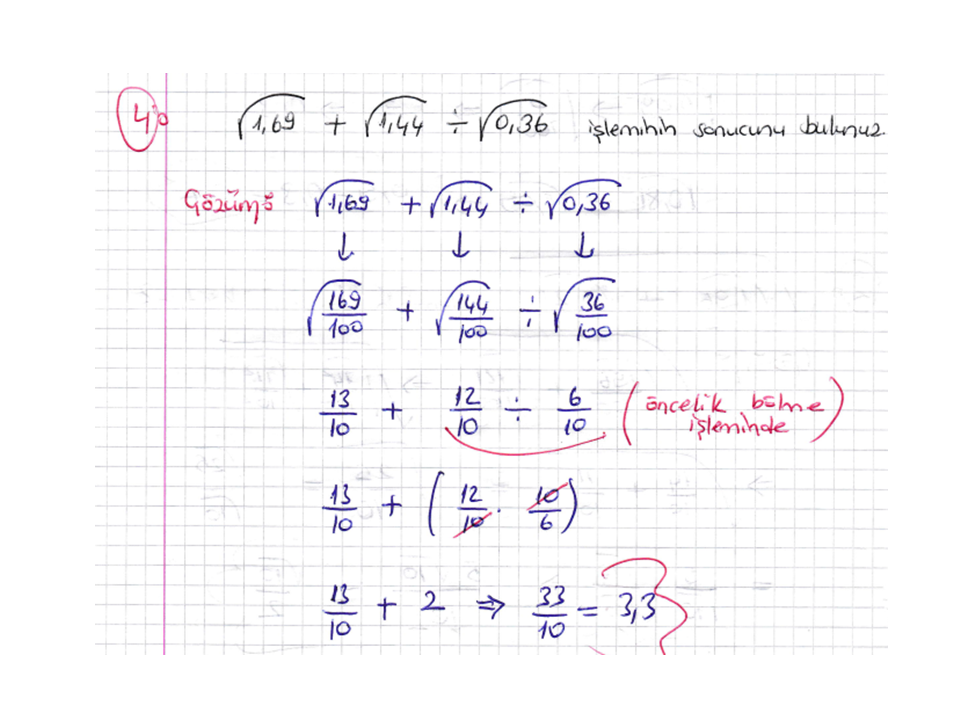 4) √1,69 + √1,44 ÷ √0,36 işleminin sonucunu bulunuz.
Çözüm: √1,69 + √1,44 ÷ √0,36
↓ ↓ ↓
√169/100 + √144/100 ÷ √36/100
13/10 + 12/10 ÷ 6/10 (öncelik bölme işleminde)
13/10 + (12/10 · 10/6)
13/10 + 2 ⇒ 33/10 = 3,3